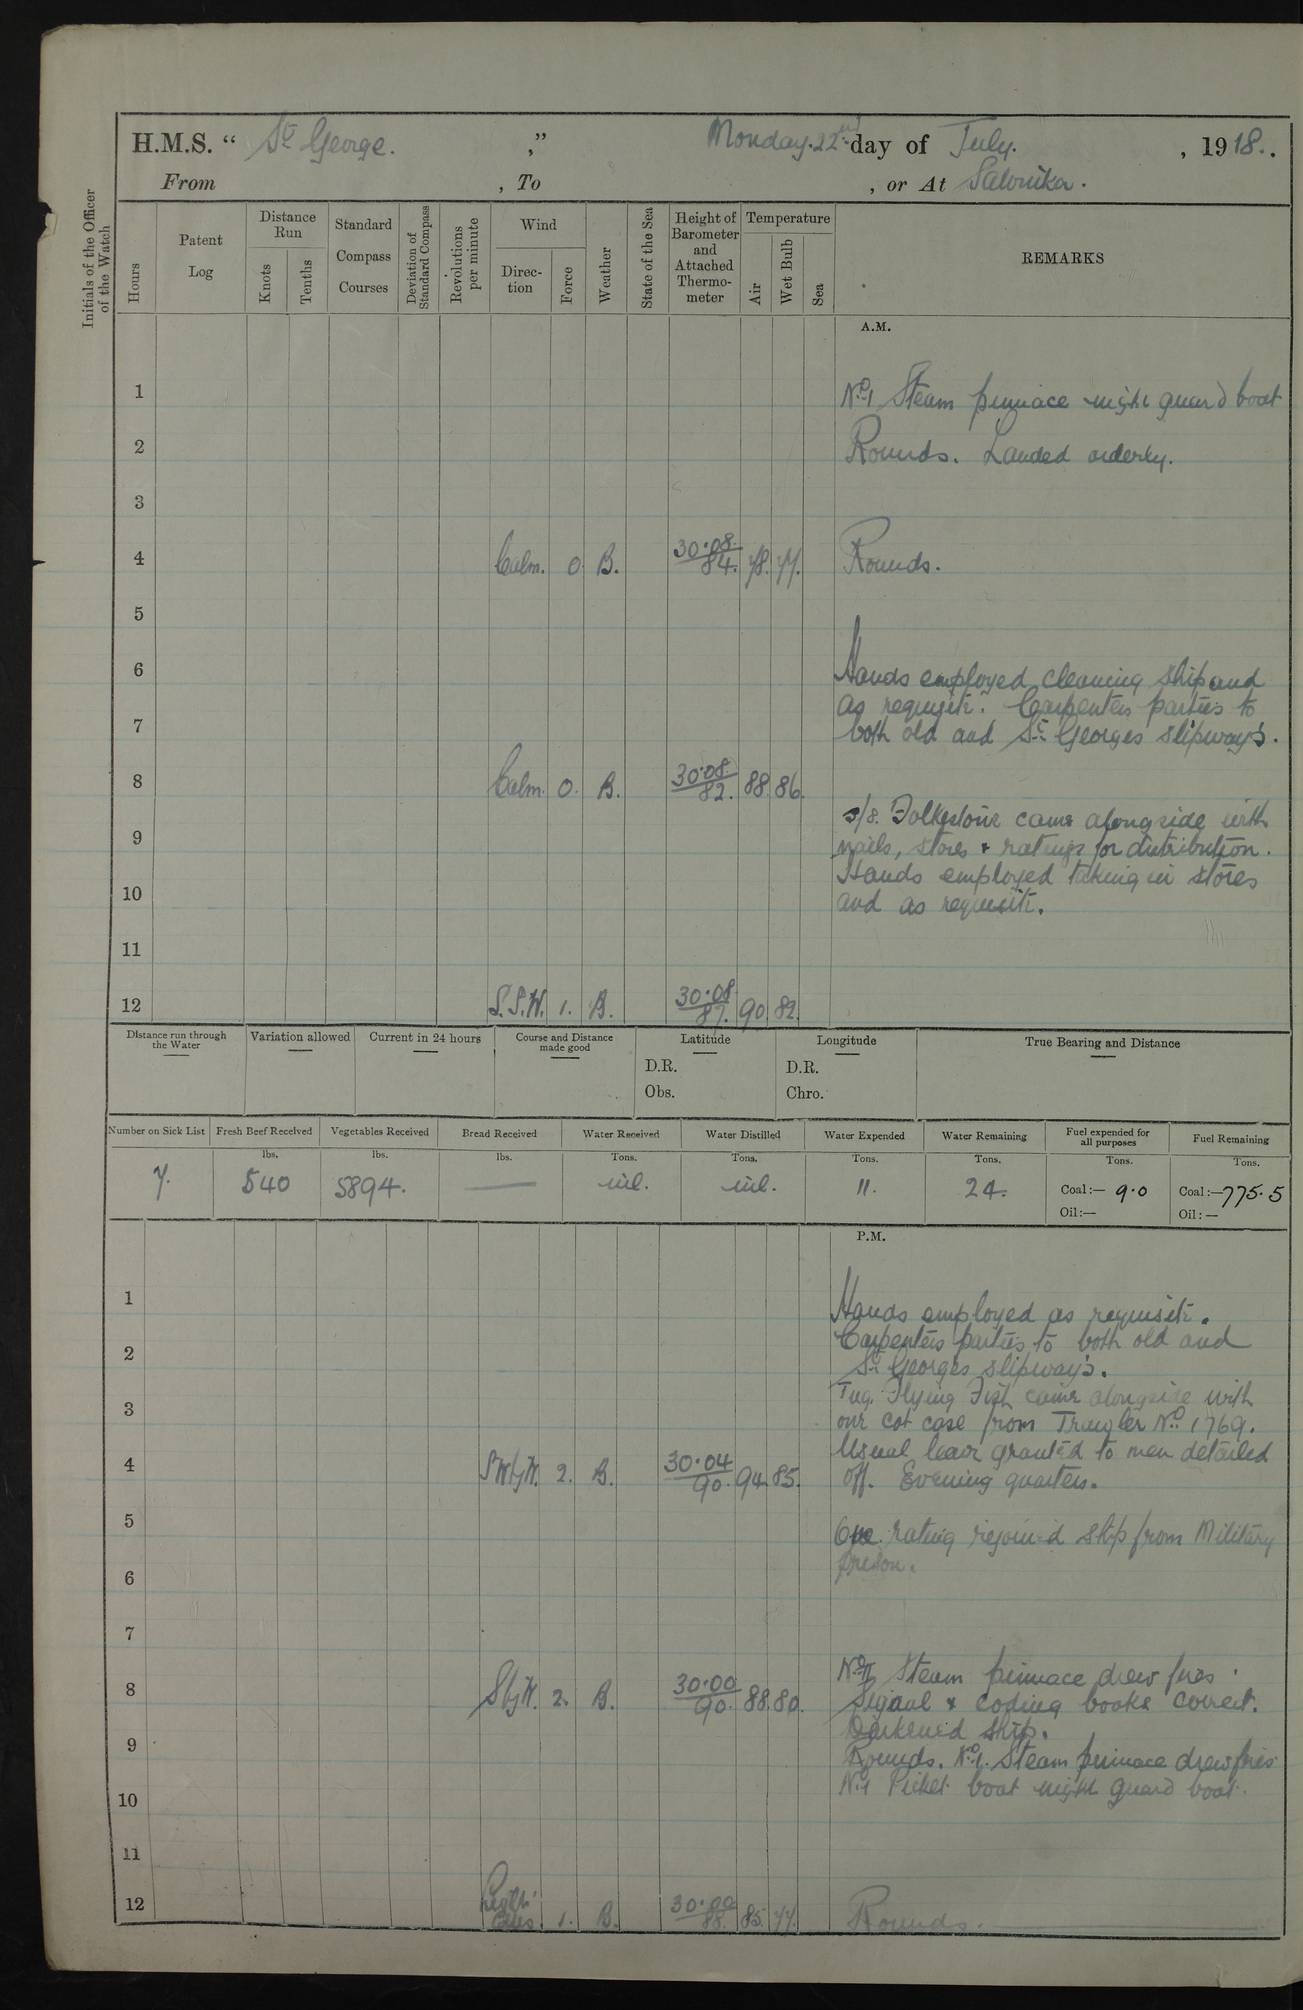 H.M.S. “ St. George. ,” Monday. 22nd day of July. , 1918.
From , To , or At Salonika.
Initials of the Officer of the Watch
Hours
Patent Log
Distance Run
Knots
Tenths
Standard Compass Courses
Deviation of Standard Compass
Revolutions per minute
Wind
Direc-tion
Force
Weather
State of the Sea
Height of Barometer and Attached Thermo-meter
Temperature
Air
Wet Bulb
Sea
REMARKS
A.M.
1 No. 1 Steam pinnace night guard boat
2 Rounds. Landed orderly.
3
4 Calm. 0. B. 30.08. 84. 78. 77. Rounds.
5
6 Hands employed cleaning ship and
as requisite. Carpenters parties to
7 both old and St. Georges slipways.
8 Calm. 0. B. 30.08. 82. 88. 86.
s/s. Folkestone came alongside with
9 mails, stores & ratings for distribution.
Hands employed taking in stores
10 and as requisite.
11
12 S.S.W. 1. B. 30.08 87. 90. 82.
Distance run through the Water
Variation allowed
Current in 24 hours
Course and Distance made good
Latitude
D.R.
Obs.
Longitude
D.R.
Chro.
True Bearing and Distance
Number on Sick List
Fresh Beef Received
Vegetables Received
Bread Received
Water Received
Water Distilled
Water Expended
Water Remaining
Fuel expended for all purposes
Fuel Remaining
lbs. lbs. lbs. Tons. Tons. Tons. Tons. Tons. Tons.
7. 540 5894. — nil. nil. 11. 24. Coal:— 9.0 Coal:—775.5
Oil:— Oil:—
P.M.
1 Hands employed as requisite.
2 Carpenters parties to both old and
St. Georges slipways.
Tug. Flying Fish came alongside with
3 one cot case from Trawler No. 1769.
Usual leave granted to men detailed
4 S.W.byW. 2. B. 30.04 90. 94. 85. off. Evening quarters.
5 One rating rejoined ship from Military
6 prison.
7
No. II Steam pinnace drew fires.
8 SbyW. 2. B. 30.00 90. 88. 80. Signal & coding books correct.
Darkened ship.
9 Rounds. No. 1. Steam pinnace drew fires
10 No. 1 Picket boat night guard boat.
11
12 Light airs 1. B. 30.00 88. 85. 77. Rounds.